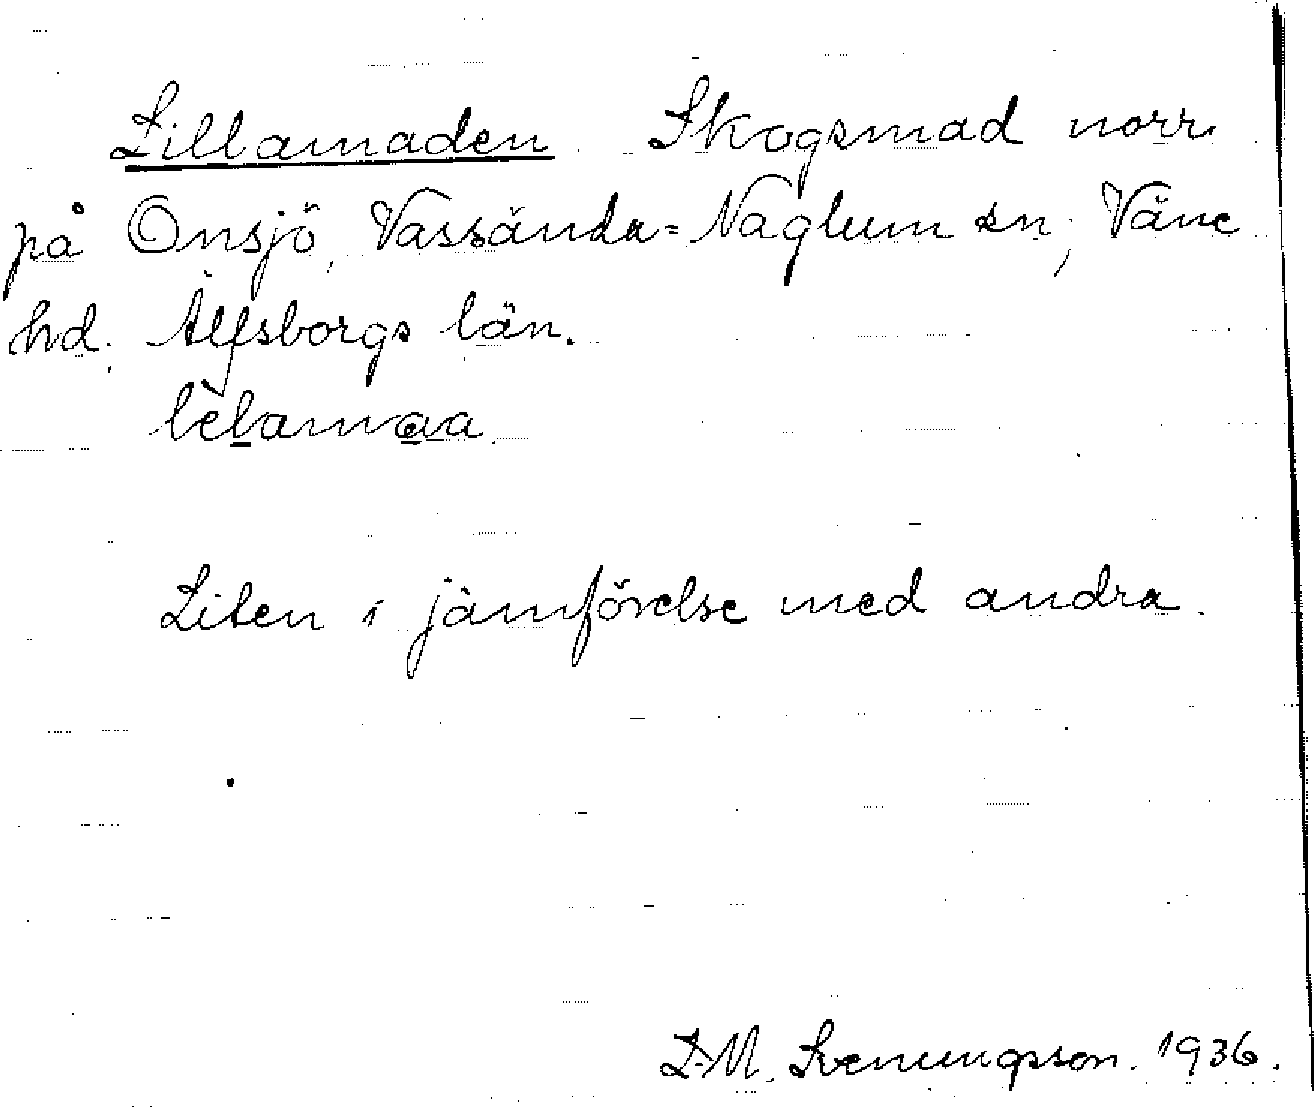 Lillamaden Skogsmad norr
på Onsjö, Vassända=Naglum sn, Väne
hd, Älfsborgs län.
lèlamaa.
Liten i jämförelse med andra.
1936.